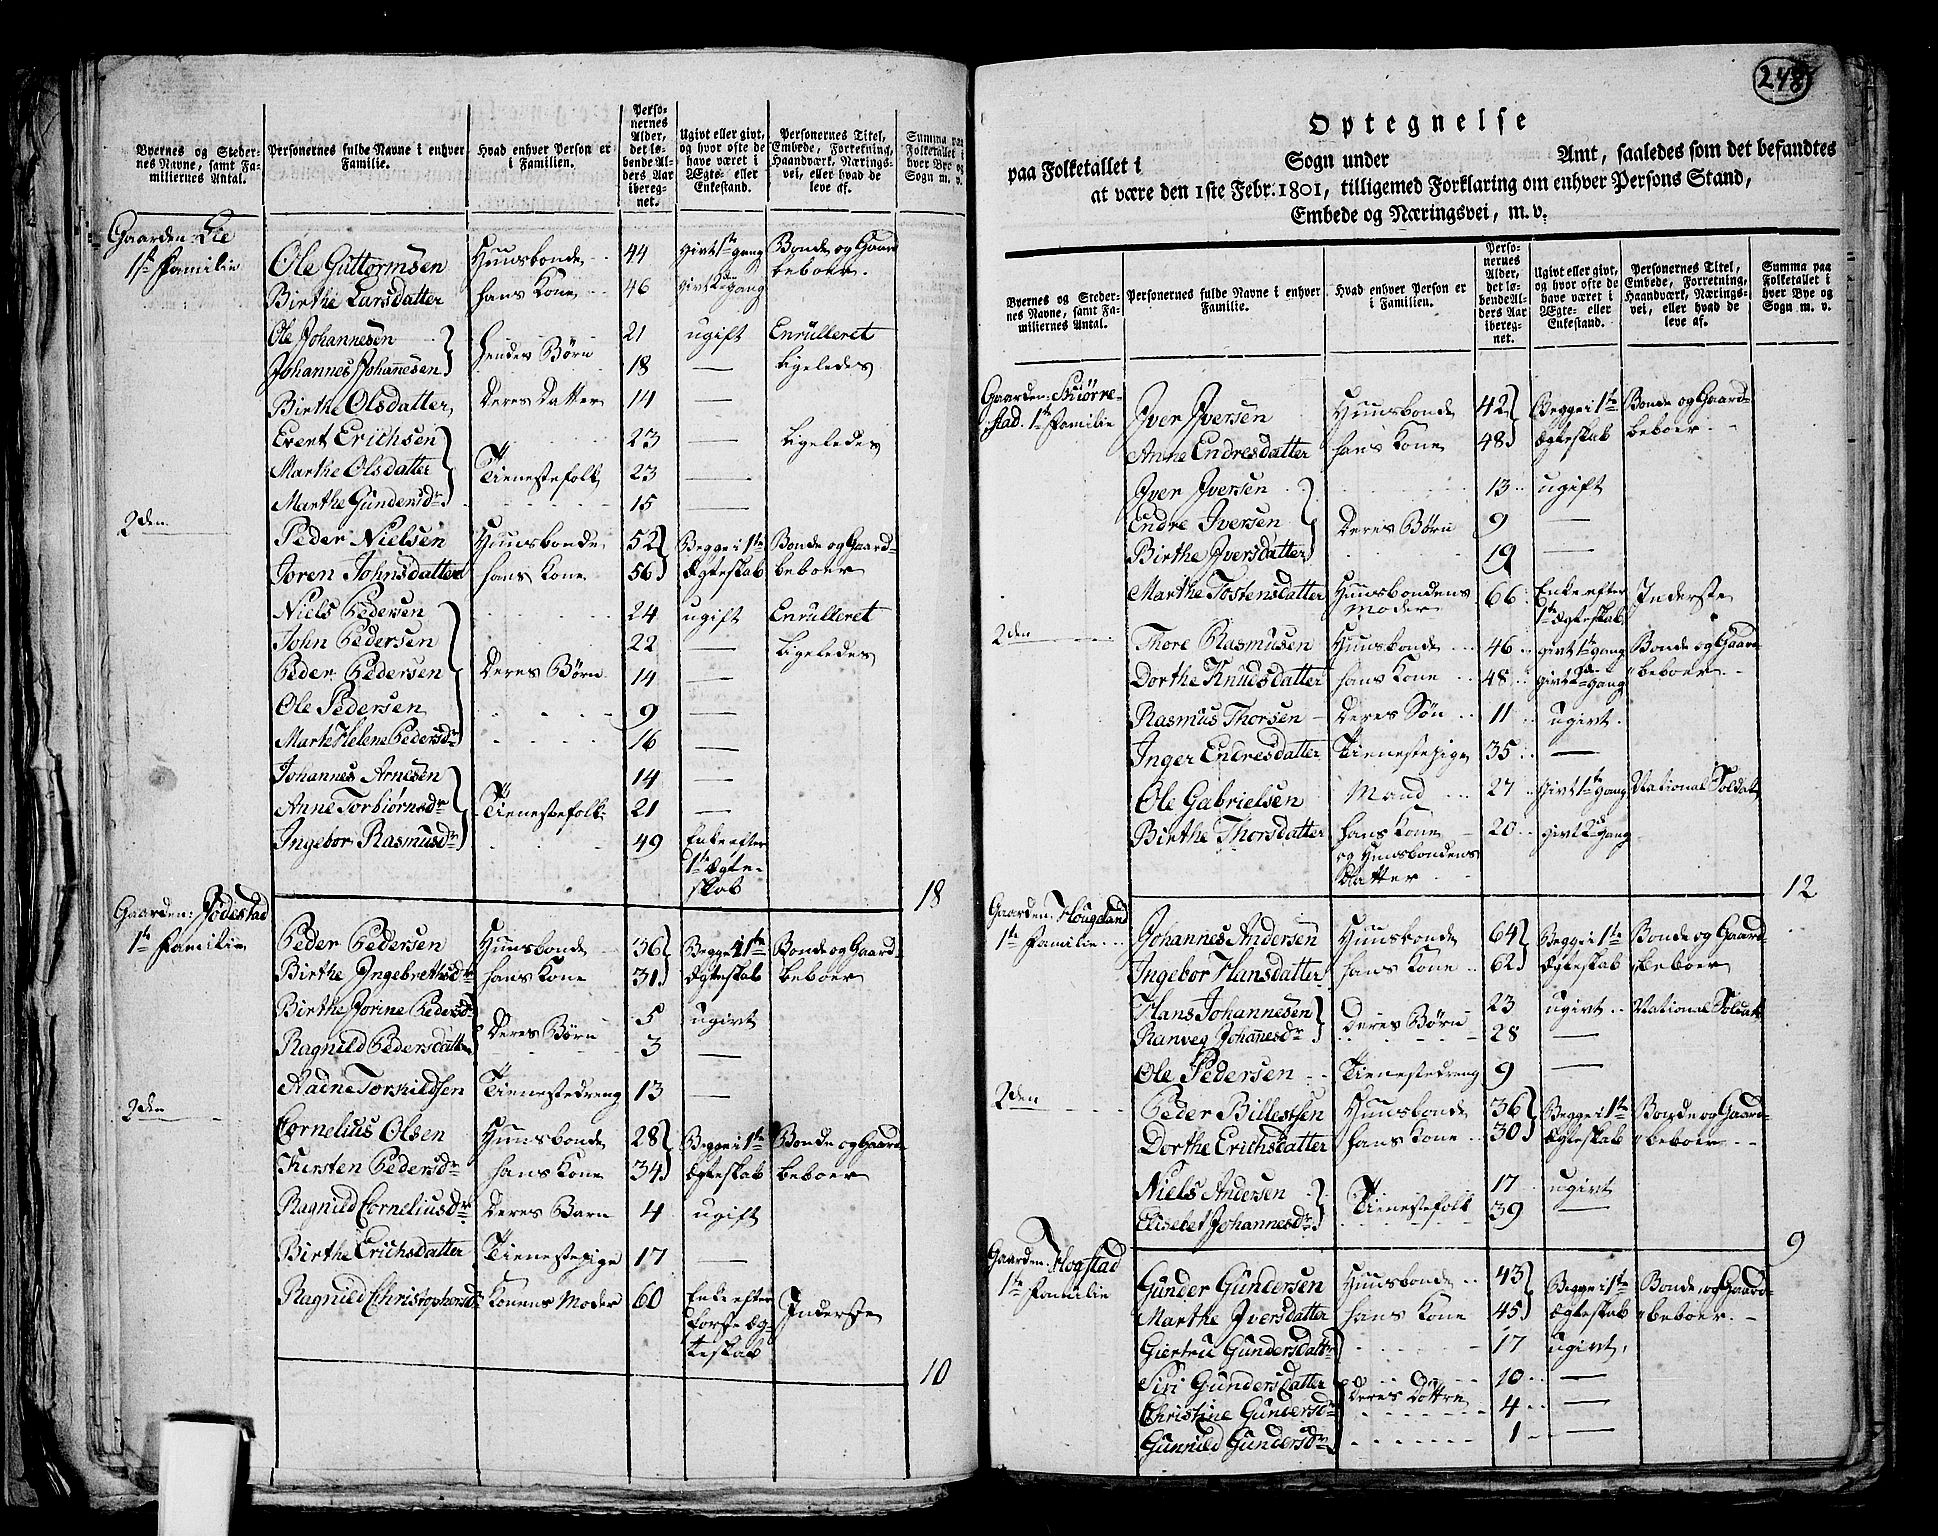 Byernes og Steder-
nes Navne, samt Fa-
miliernes Antal.
Personernes fulde Navne i enhver
Familie.
Hvad enhver Person er
i Familien.
Perso-
nernes
Alder,
det lø-
bende Al-
ders Aar
ibereg-
net.
Ugivt eller givt,
og hvor ofte de
have været i
Ægte- eller
Enkestand.
Personernes Titel,
Embede, Forretning,
Haandværk, Nærings-
vei, eller hvad de
leve af.
Summa paa
Folketallet i
hver Bye og
Sogn m. v.
Gaarden Lie
1ste Familie
Ole Guttormsen Huusbonde 44 givt 1ste gang Bonde og Gaard
beboer.
Birthe Larsdatter hans Kone 46 givt 2den gang
Ole Johannesen 21 ugift Enrulleret
hendes Børn
Johannes Johannesen 18 — Ligeledes
Birthe Olsdatter Deres Datter 14 —
Evert Erichsen 23 — Ligeledes
Marthe Olsdatter Tienestefolk 23 —
Marthe Gundersdr 15 —
2den
Peder Nielsen Huusbonde 52 Begge i 1ste Bonde og Gaard-
Joren Johnsdatter hans Kone 56 Ægteskab beboer
Niels Pedersen 24 ugift Enrulleret
John Pedersen 22 — Ligeledes
Peder Pedersen Deres Børn 14 —
Ole Pedersen 9 —
Marthe Helene Pedersdr 16 —
Johannes Arnesen 14 —
Anne Torbiørnsdr Tienestefolk 21 —
Ingebor Rasmusdr 49 Enke efter
1ste Ægte-
skab
18
Gaarden: Jødestad
1ste Familie
Peder Pedersen Huusbonde 36 Begge i 1ste Bonde og Gaard-
Birthe Ingebrethsdr hans Kone 31 Ægteskab beboer
Birthe Jorine Pedersdr 5 ugivt
Deres Børn
Ragnild Pedersdatter 3 —
Aadne Torkildsen Tienestedreng 13 —
2den
Cornelius Olsen Huusbonde 28 Begge i 1ste Bonde og Gaard-
Kirsten Pedersdr hans Kone 34 Ægteskab beboer
Ragnild Corneliusdr Deres Barn 4 ugift
Birthe Erichsdatter Tienestepige 17 —
Ragnild Christophersdr Konens Moder 60 Enke efter Inderste
første Æg-
teskab
10
248
Optegnelse
paa Folketallet i Sogn under Amt, saaledes som det befandtes
at være den 1ste Febr. 1801, tilligemed Forklaring om enhver Persons Stand,
Embede og Næringsvei, m. v.
Byernes og Steder-
nes Navne, samt Fa-
miliernes Antal.
Personernes fulde Navne i enhver
Familie.
Hvad enhver Person er
i Familien.
Perso-
nernes
Alder,
det lø-
bende Al-
ders Aar
ibereg-
net.
Ugivt eller givt,
og hvor ofte de
have været i
Ægte- eller
Enkestand.
Personernes Titel,
Embede, Forretning,
Haandværk, Nærings-
vei, eller hvad de
leve af.
Summa paa
Folketallet i
hver Bye og
Sogn m. v.
Gaarden: Skiørre-
stad. 1ste Familie
Iver Iversen Huusbonde 42 Begge i 1ste Bonde og Gaard-
Anne Endresdatter hans Kone 48 Ægteskab beboer
Iver Iversen 13 ugift
Endre Iversen Deres Børn 9 —
Birthe Iversdatter 19 —
Marthe Tostensdatter Huusbondens Moder 66 Enke efter 1ste Ægteskab Inderste
2den
Thore Rasmusen Huusbonde 46 givt 1ste gang Bonde og Gaard-
Dorthe Knudsdatter hans Kone 48 givt 2den gang beboer
Rasmus Thorsen Deres Søn 11 ugivt
Inger Endresdatter Tienestepige 35 —
Ole Gabrielsen Mand 27 givt 1ste gang National Soldat
Birthe Thorsdatter hans Kone 20 givt 2den gang
og Huusbondens
Datter
12
Gaarden: Hougeland
1ste Familie
Johannes Andersen Huusbonde 64 Begge i 1ste Bonde og Gaard-
Ingebor Hansdatter hans Kone 62 Ægteskab beboer
Hans Johannesen 23 ugivt National Soldat
Deres Børn
Ranveg Johannesdr 28 —
Ole Pedersen Tienestedreng 9 —
2den
Peder Billestsen Huusbonde 36 Begge i 1ste Bonde og Gaard-
Dorthe Erichsdatter hans Kone 30 Ægteskab beboer
Niels Andersen 17 ugivt
Tienestefolk
Elisebet Johannesdr 39 —
9
Gaarden: Hogstad
1ste Familie
Gunder Gundersen Huusbonde 43 Begge i 1ste Bonde, og Gaard-
Marthe Iversdatter hans Kone 45 Ægteskab beboer
Giertru Gundersdatter 17 ugivt
Siri Gundersdatter 10 —
Deres Døttre
Christine Gundersdr 4 —
Gunnild Gundersdr 1 —